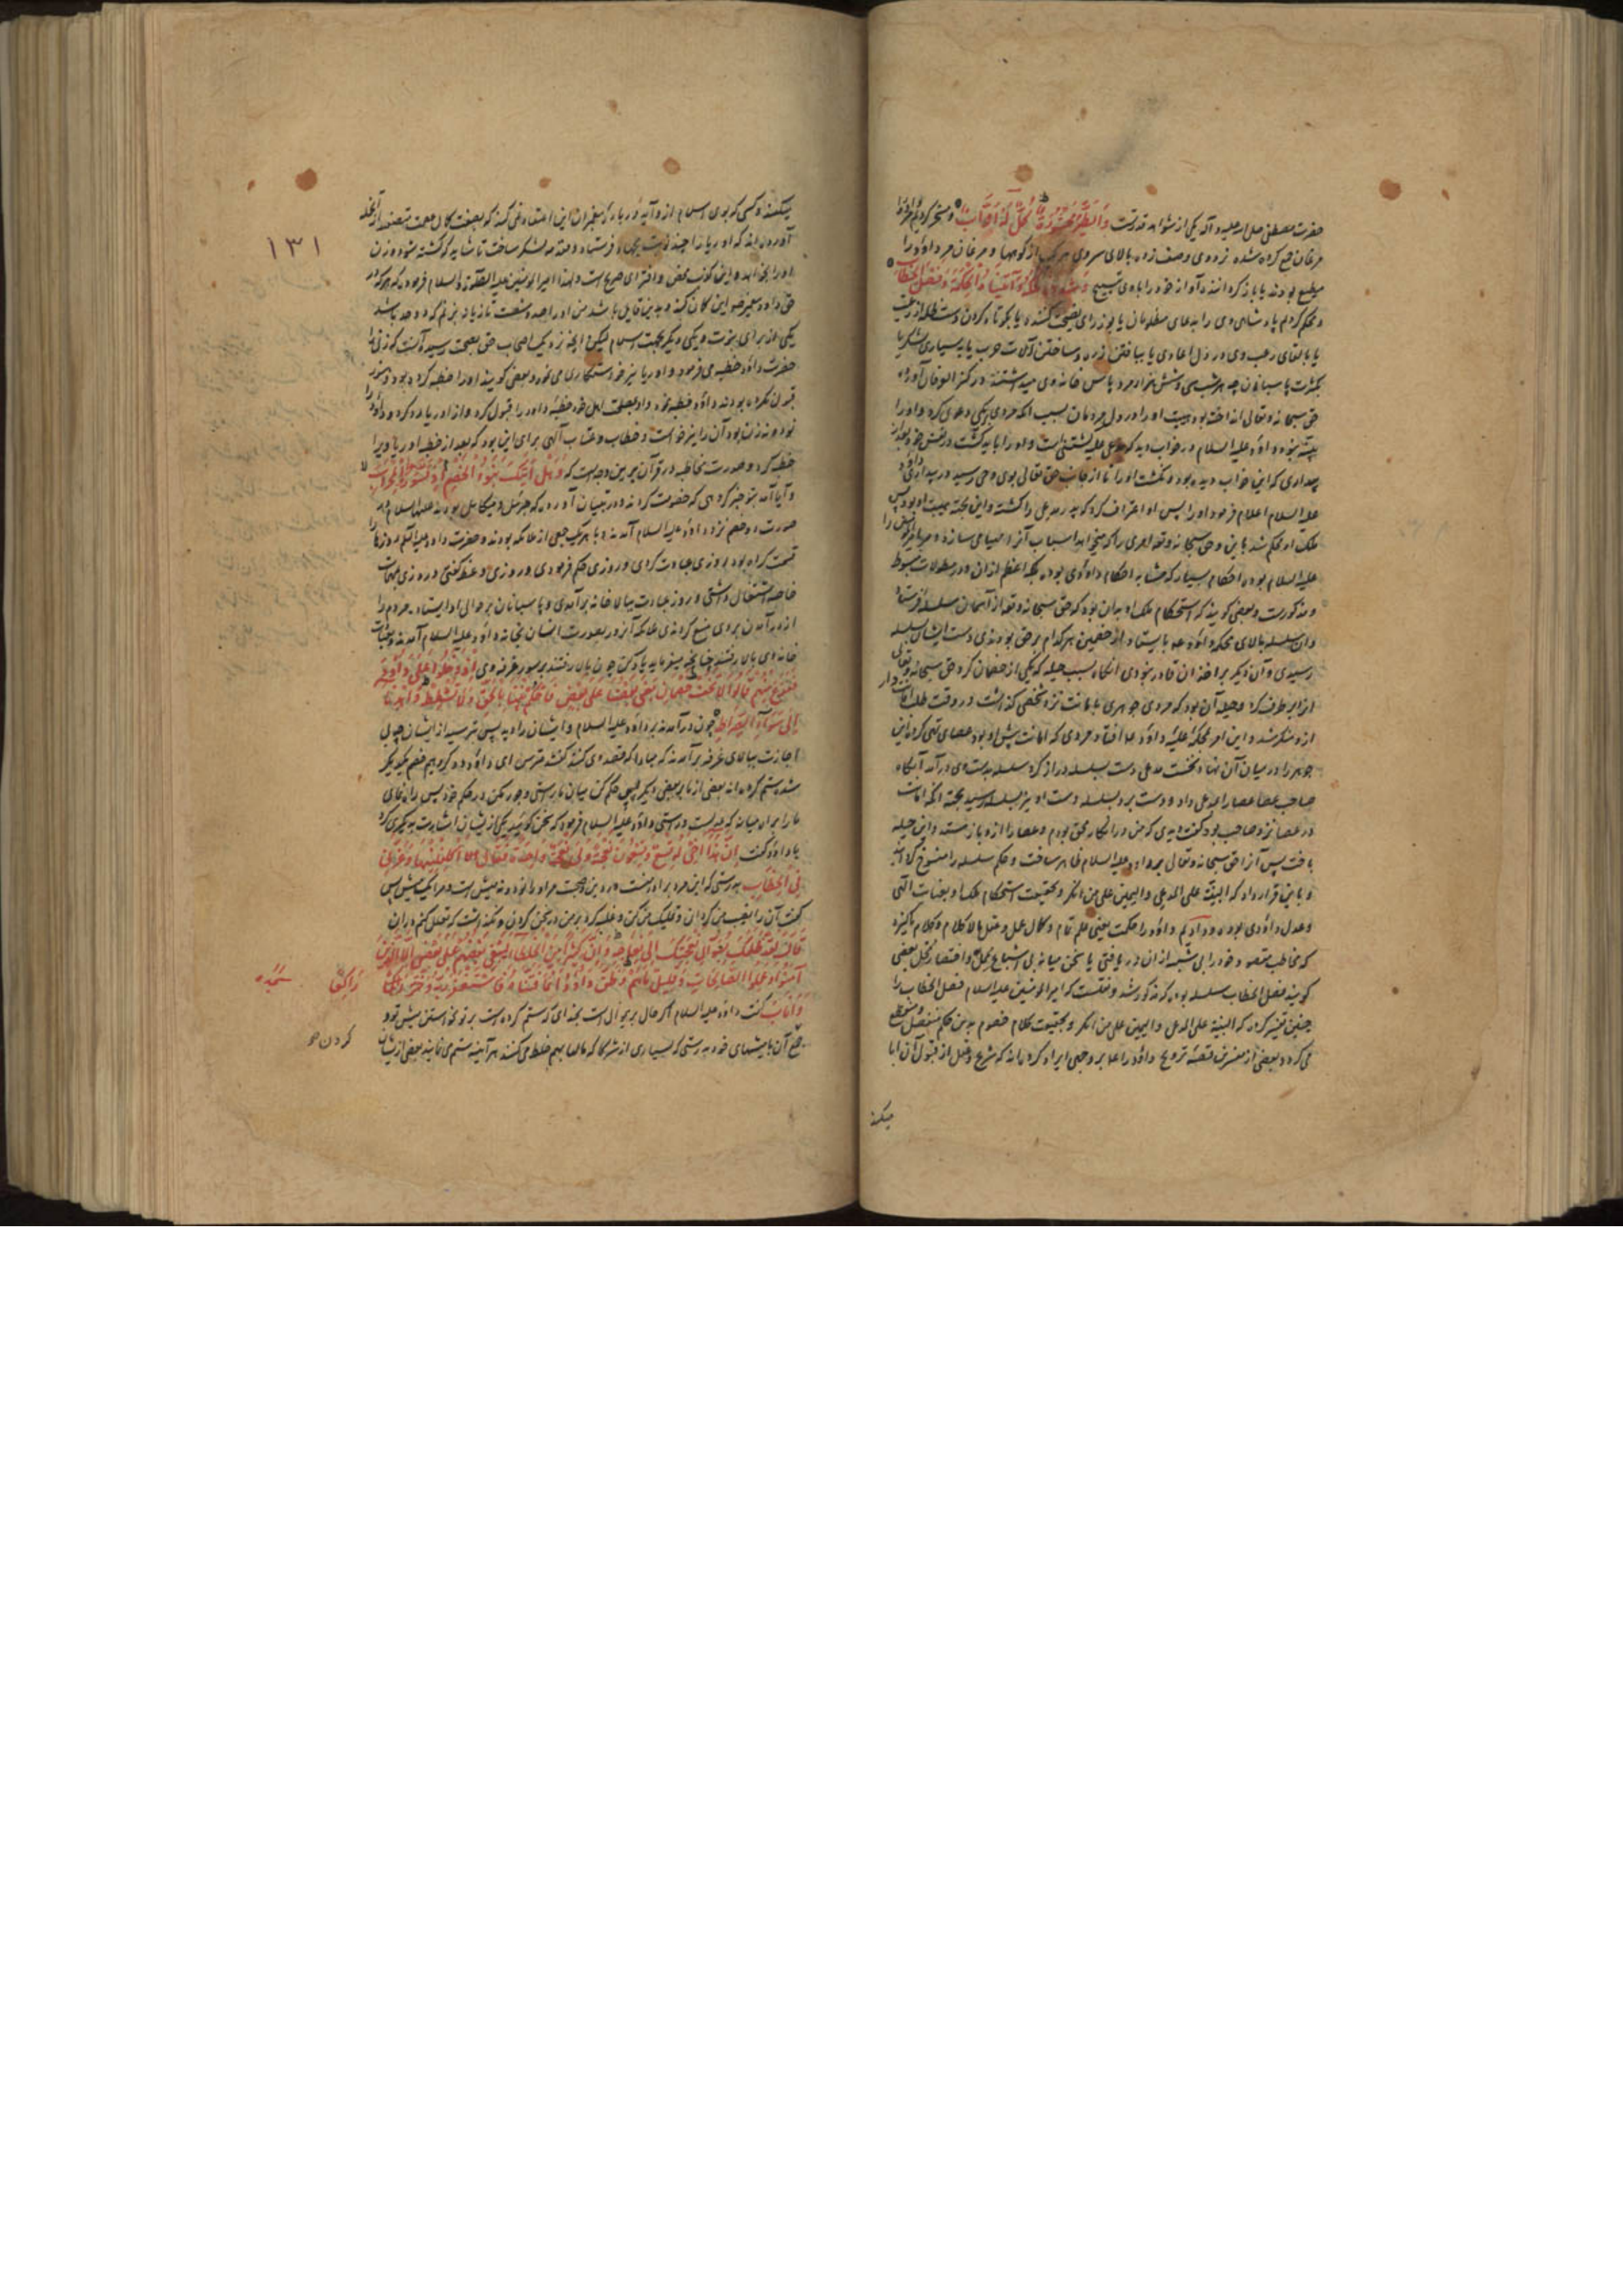 حضرت مصطفی صلی الله علیه و آله یکی از شواهد قدرتست وَالطَّيْرَ مَحْشُورَةً كُلٌّ لَهُ أَوَّابٌ و مسخر کردیم مر او را
مرغان جمع کرده شده نزد وی وصف زده بالای سر وی هر یک از کوهها و مرغان مر داود را
مطیع بودند یا باز گرداننده آواز خود را با وی تسبیح وَشَدَدْنَا مُلْكَهُ وَآتَيْنَاهُ الْحِكْمَةَ وَفَصْلَ الْخِطَابِ
و محکم کردیم پادشاهی وی را بدعای مظلومان یا بوزرای نصیحت کننده یا بکوتاه کردن دست ظلمه از رعیت
یا بالقای رعب وی در دل اعادی یا ببافتن زره و ساختن آلات حرب یا به بسیاری لشکر یا
بکثرت پاسبانان چه هر شب سی و شش هزار مرد پاس خانه وی میداشتند در کنز العرفان آورده
حق سبحانه و تعالی انداخته بود هیبت او را در دل مردمان بسبب آنکه مردی بر یکی دعوی کرد و او را
بینه نبود داود علیه السلام در خواب دید که مدعی علیه کشتنی است
بیداری که این خواب دیده بود و نکشت او را تا از جانب حق تعالی بوی وحی رسید در بیداری
علیه السلام اعلام فرمود او را پس او اعتراف کرد که پدر مدعی را کشته و این بجهت هیبت او بود پس
ملک او محکم شد باین و حق سبحانه و تعالی امری را که میخواهد اسباب آنرا مهیا می سازد
علیه السلام بوده احکام بسیار که مشابه احکام داودی بوده بلکه اعظم از ان و در مطولات مبسوط
و مذکورست و بعضی گویند که استحکام ملک او بدان بود که حق سبحانه و تعالی از آسمان سلسله فرستاد
و ان سلسله بالای محکمه داود علیه بایستاد از خصمین هر کدام بر حق بودندی دست ایشان بسلسله
رسیدی و آن دیگر بر اخذ ان قادر نبودی آنگاه بسبب حیله که یکی از خصمان کرد حق سبحانه و تعالی
انرا برطرف کرد و حیله آن بود که مردی جوهری بامانت نزد شخصی گذاشت و در وقت طلب امانت دار
ازو منکر شد و این امر بمحکمه علیه داود علیه افتاد مردی که امانت پیش او بود عصای تهی کرده این
جوهر را در میان آن نهاد نخست مدعی دست بسلسله دراز کرد سلسله بدست وی در آمد آنگاه
صاحب عصا عصا را بمدعی داد و دست برد بسلسله دست او نیز بسلسله رسید بجهت آنکه امانت
در عصا نزد صاحب بود
یافت پس آنرا حق سبحانه و تعالی بداود علیه السلام ظاهر ساخت و حکم سلسله را منسوخ گردانید
و باین قرار داد که البینة علی المدعی و الیمین علی من انکر و بحقیقت استحکام ملک او بعنایات الهی
و عدل داودی بوده و دادیم داود را حکمت یعنی علم تام و کمال عمل و عقل با کلام و کلام پاکیزه
که مخاطب مقصود خود را بی شبهه از ان دریافتی یا سخن میانه بی اشباع ممل و اختصار مخل بعضی
گویند فصل الخطاب سلسله بوده که مذکور شد و منقولست که امیر المومنین علیه السلام فصل الخطاب را
چنین تفسیر کرد که البینة علی المدعی و الیمین علی من انکر و بحقیقت کلام خصوم بدین حکم منفصل و منقطع
می گردد و بعضی از مفسرین قصه تزویج داود را علیه بر وجهی ایراد کرده اند که شرع و عقل از قبول آن ابا
میکند
۱۳۱
میکند و کسی که بوی اسلام ازو آید در باره پیغمبران این اعتقاد نمی کند که بصفت کمال عصمت متصفند از آنجمله
آورده اند که اوریا را چند نوبت بجهاد فرستاد و مقدمه لشکر ساخت تا شاید که کشته شود و زن
او را بخواهد و این کذب محض و افترای صریح است و لهذا امیر المومنین علیه الصلوة و السلام فرمود که هر که در
حق داود پیغمبر این گمان کند و بدین قایل باشد من او را صد و شصت تازیانه بزنم که دو حد باشد
یکی از برای نبوت و یکی دیگر بجهت اسلام لیکن آنچه نزدیک اصحاب حق بصحت رسیده آنست که زنی را
حضرت داود خطبه می فرمود و اوریا نیز خواستگاری می نمود و بعضی گویند او را خطبه کرده بود و هنوز
قبول نکرده بودند داود خطبه نمود و اهل خود خطبه داود را قبول کرد و از اوریا رد کرد و داود را
نود و نه زن بود آن را نیز خواست و خطاب و عتاب آلهی برای این بود که بعد از خطبه اوریا ویرا
خطبه کرد و صورت مخاطبه در قرآن برین وجه است که وَهَلْ أَتَاكَ نَبَأُ الْخَصْمِ إِذْ تَسَوَّرُوا الْمِحْرَابَ
و آیا آمد بتو خبر گروهی که خصومت کردند و در تبیان آورده که جبرئیل و میکائیل بودند علیهما السلام در
صورت دو خصم نزد داود علیه السلام آمدند و با هر یک جمعی از ملائکه بودند و حضرت داود علیه السلم روزها را
قسمت کرده بود روزی عبادت کردی و روزی حکم فرمودی و روزی وعظ گفتی و روزی بمهمات
خاصه اشتغال داشتی و روز عبادت ببالاخانه بر آمدی و پاسبانان بر حوالی او ایستاده مردم را
از در آمدن بر وی منع کردندی ملائکه آنروز بصورت انسان بخانه داود علیه السلام آمدند
خانه وی بالا رفتند چنانچه میفرماید یاد کن چون بالا رفتند بر سور غرفه وی إِذْ دَخَلُوا عَلَىٰ دَاوُودَ
فَفَزِعَ مِنْهُمْ قَالُوا لَا تَخَفْ خَصْمَانِ بَغَىٰ بَعْضُنَا عَلَىٰ بَعْضٍ فَاحْكُمْ بَيْنَنَا بِالْحَقِّ وَلَا تُشْطِطْ وَاهْدِنَا
إِلَىٰ سَوَاءِ الصِّرَاطِ چون در آمدند بر داود علیه السلام و ایشان را دید پس بترسید از ایشان چه بی
اجازت ببالای غرفه بر آمدند که مبادا که قصد وی کنند گفتند مترس ای داود دو گروهیم خصم یکدیگر
شده ستم کرده اند بعضی از ما بر بعضی دیگر پس حکم کن میان ما براستی و جور مکن در حکم خود پس راه نمای
ما را براه میانه که عدلست و راستی داود علیه السلام فرمود که سخن گوئید یکی از ایشان اشارت بدیگری کرد
یا داود گفت إِنَّ هَٰذَا أَخِي لَهُ تِسْعٌ وَتِسْعُونَ نَعْجَةً وَلِيَ نَعْجَةٌ وَاحِدَةٌ فَقَالَ أَكْفِلْنِيهَا وَعَزَّنِي
فِي الْخِطَابِ بدرستی که این مرد برادر منست در دین و صحبت مر او را نود و نه میش است و مرا یک میش پس
گفت آن را نصیب من گردان و تملیک من کن و غلبه کرد بر من در سخن کردن و نگذاشت که تعلل کنم در ان
قَالَ لَقَدْ ظَلَمَكَ بِسُؤَالِ نَعْجَتِكَ إِلَىٰ نِعَاجِهِ وَإِنَّ كَثِيرًا مِنَ الْخُلَطَاءِ لَيَبْغِي بَعْضُهُمْ عَلَىٰ بَعْضٍ إِلَّا الَّذِينَ
آمَنُوا وَعَمِلُوا الصَّالِحَاتِ وَقَلِيلٌ مَا هُمْ وَظَنَّ دَاوُودُ أَنَّمَا فَتَنَّاهُ فَاسْتَغْفَرَ رَبَّهُ وَخَرَّ رَاكِعًا
وَأَنَابَ گفت داود علیه السلام اگر حال برین منوال است بخدای که ستم کرده است بر تو بخواستن میش تو و
جمع آن با میشهای خود بدرستی که بسیاری از شرکا که مالها بهم خلط می کنند هر آینه ستم می نمایند بعضی از ایشان
راكعا سجده
کردن